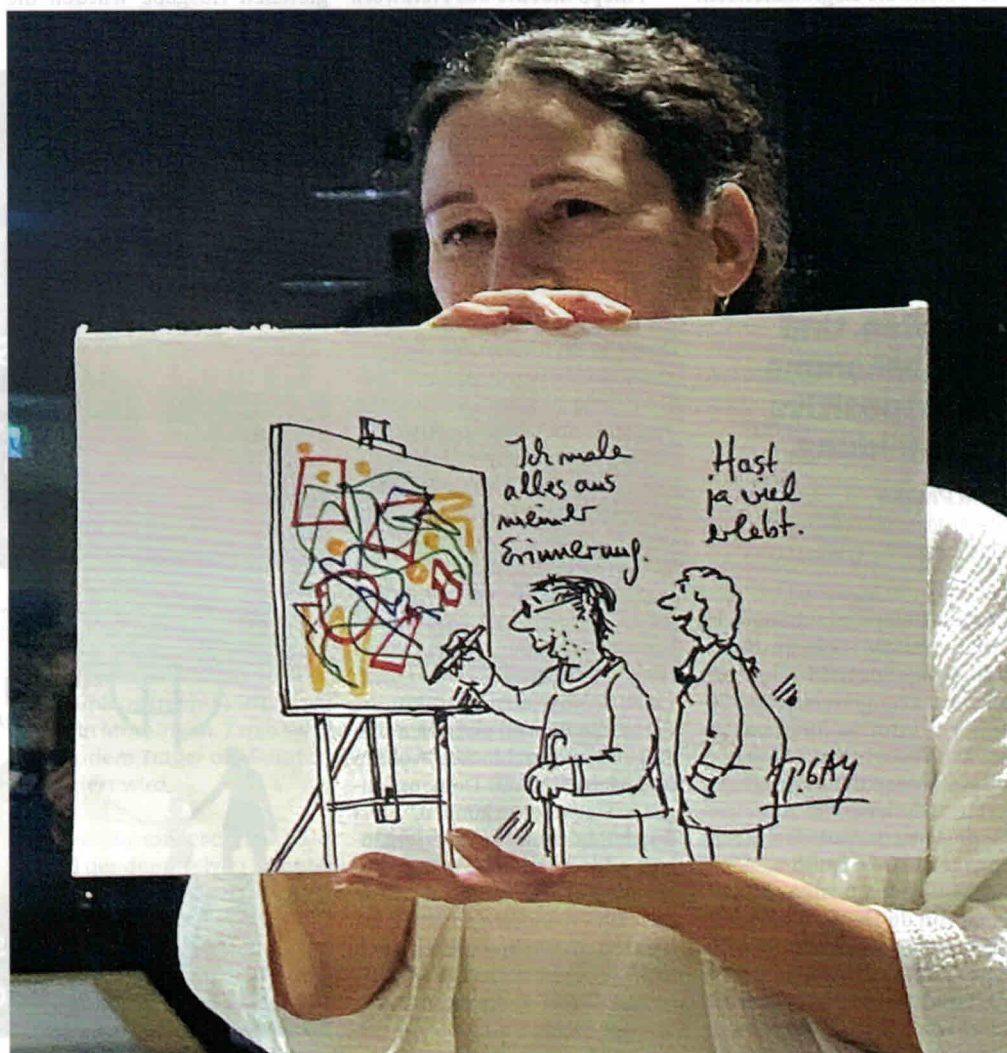 Ich male
alles aus
meiner
Erinnerung.
Hast
ja viel
erlebt.
HP.GAY